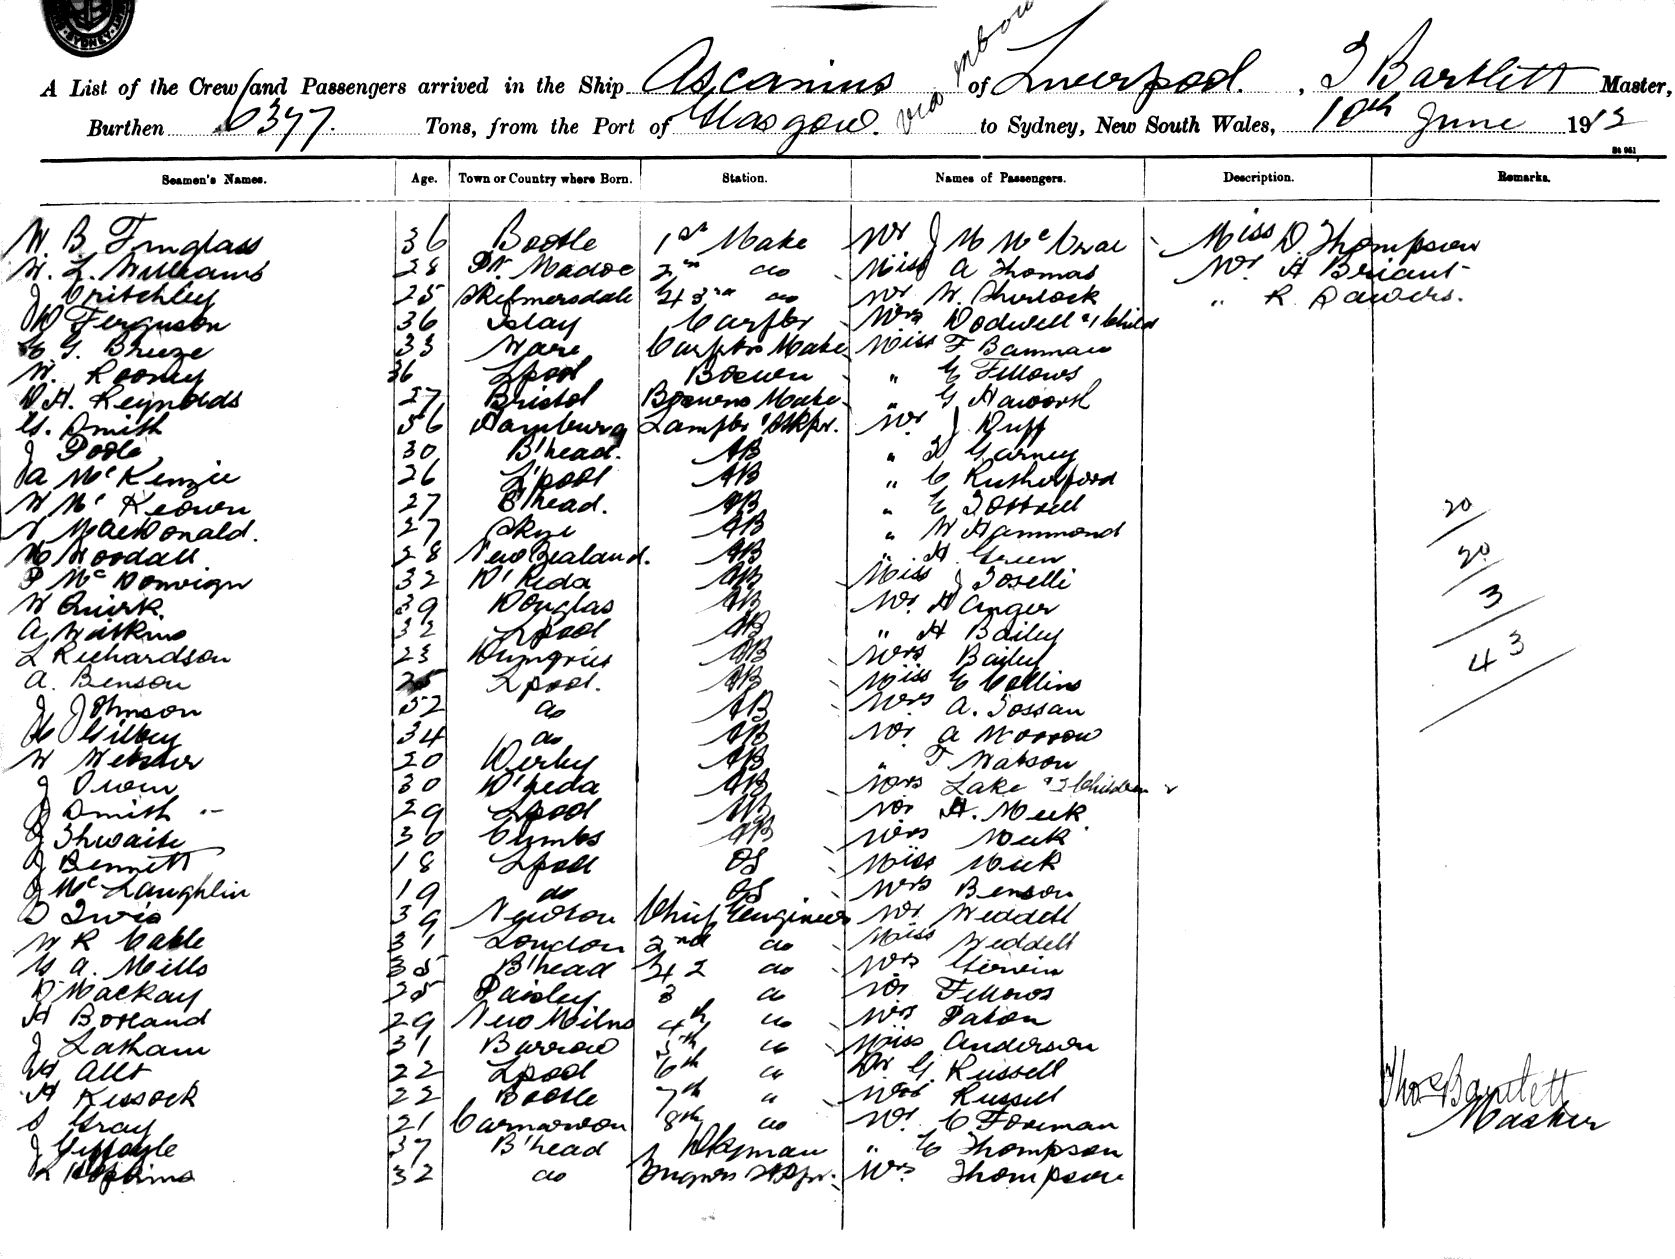 SYDNEY
A List of the Crew and Passengers arrived in the Ship Ascanius of Liverpool, T Bartlett Master,
Burthen 6397. Tons, from the Port of Glasgow. via to Sydney, New South Wales, 10th June 1912
Seamen's Names. Age. Town or Country where Born. Station. Names of Passengers. Description. Remarks.
W. B. Finglass 36 Bootle 1st Mate Mr J M McCrae Miss D. Thompson
W. L. Williams 28 Pt. Madoc 2nd do Miss A Thomas Mr. H Briant
J Critchley 25 Skelmersdale 3rd do Mr W. Sherlock " R. Sawers.
D Ferguson 36 Islay Carptr Mrs Dodwell & 1 Child
C G. Breeze 33 Ware Carptrs Mate Miss F Bamman
W. Rooney 36 Lpool Bosun " E Fellows
D H. Reynolds 27 Bristol Bosuns Mate " G Haworth
G. Smith 56 Hamburg Lamptr & Stkpr. Mr J Duff
J Poole 30 B'head. AB " T Garney
A McKenzie 26 L'pool AB " C Rutherford
W McKeown 27 B'head. AB " E
N MacDonald. 27 Skye AB " W Hammond 20
M Woodall 28 New Zealand. AB " H. Green 20
P McDonvign 32 D'heda AB Miss J Toselli
W Quirk 39 Douglas AB Mr. H Anger 3
A Watkins 32 Lpool AB " H Bailey
L Richardson 23 Dumfries AB Mrs Bailey 43
A. Benson 25 Lpool. AB Miss E Collins
J Johnson 52 do AB Mrs A. Tossan
Gilbey 34 do AB Mr A Morrow
W Webster 20 Derby AB " F Watson
J Owen 30 D'heda AB Mrs Lake & 2 Children
J Smith 29 Lpool AB Mr H. Meek
J Thwaite 30 Cumbs AB Mrs Meek
J Bennett 18 Lpool OS Miss Meek
J McLaughlin 19 do OS Mrs Benson
39 Newton Chief Engineer Mr Weddell
W R Cable 31 London 2nd do Miss Weddell
G A. Mills 35 B'head 2 do Mrs Gerwin
D Mackay 25 Paisley 3 do Mr Fellows
H Borland 29 New Milns 4th do Mrs Paton
J Latham 31 Barrow 5th do Miss Anderson
H Allt 22 Lpool 6th do Dr G. Russell
H Kissock 22 Bootle 7th do Mrs Russell
S Gray 21 Carnarvon 8th do Mr. C Foreman
J 37 B'head Dkyman " E Thompson
Hopkins 32 do Engnrs Stkpr. Mrs. Thompson
Thos Bartlett
Master